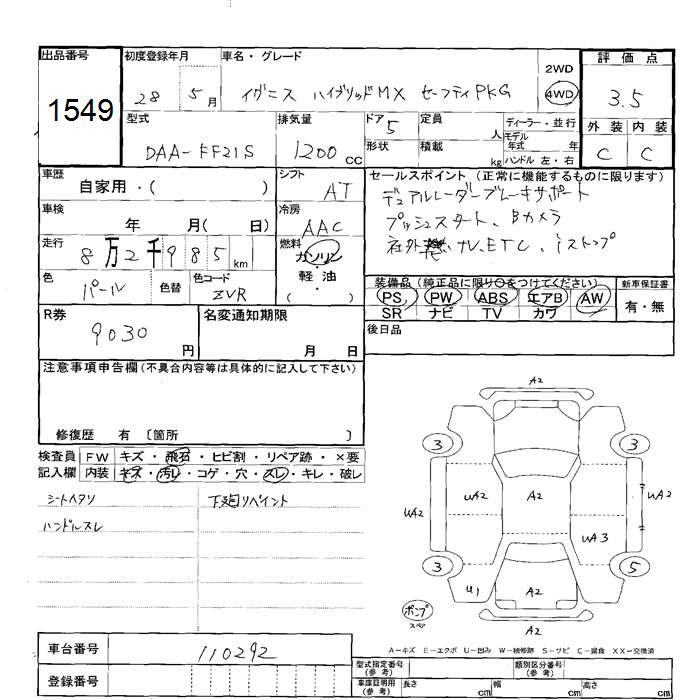 出品番号
1549
初度登録年月
28 5月
車名・グレード
イグニス ハイブリッドMX セーフティPKG
2WD
4WD
評価点
3.5
型式
DAA-FF21S
排気量
1200 cc
ドア 5
形状
定員 人
積載 kg
ディーラー・並行
モデル
年式 年
ハンドル 左・右
外装 内装
C C
車歴
自家用・( )
シフト
AT
車検
年 月( 日)
冷房
AAC
走行
8万2千985km
燃料
ガソリン
軽・油
( )
色
パール
色替
色コード
ZVR
セールスポイント (正常に機能するものに限ります)
デュアルレーダーブレーキサポート
プッシュスタート、Bカメラ
社外 ナビ、ETC、iストップ
装備品 (純正品に限り〇をつけてください)
PS PW ABS エアB AW
SR ナビ TV カワ
新車保証書
有・無
後日品
R券
9030円
名変通知期限
月 日
注意事項申告欄 (不具合内容等は具体的に記入して下さい)
修復歴 有 〔箇所 〕
検査員
記入欄
FW キズ・飛石・ヒビ割・リペア跡・×要
内装 キズ・汚レ・コゲ・穴・スレ・キレ・破レ
シートヘタリ
ハンドルスレ
下廻リペイント
A2
3 3
UA2 UA2 A2 UA2
UA3
3 5
U1 A2
ポンプ
スペア
A2
A－キズ E－エクボ U－凹み W－補修跡 S－サビ C－腐食 XX－交換済
車台番号
110292
登録番号
型式指定番号
(参考)
類別区分番号
(参考)
車庫証明用
(参考)
長さ cm 幅 cm 高さ cm